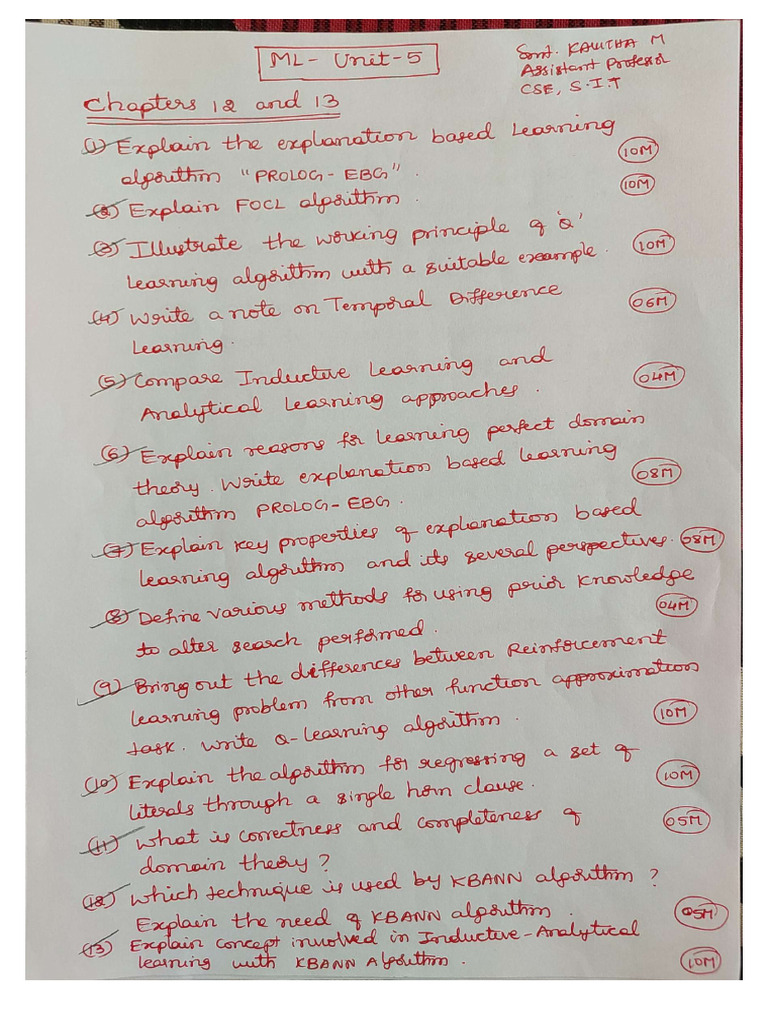 ML - Unit-5
Smt. KAVITHA M
Assistant Professor
CSE, S.I.T
Chapters 12 and 13
(1) Explain the explanation based Learning
algorithm "PROLOG-EBG". 10M
(2) Explain FOCL algorithm. 10M
(3) Illustrate the working principle of 'Q'
Learning algorithm with a suitable example. 10M
(4) Write a note on Temporal Difference
Learning. 06M
(5) Compare Inductive Learning and
Analytical Learning approaches. 04M
(6) Explain reasons for learning perfect domain
theory. Write explanation based learning
algorithm PROLOG-EBG. 08M
(7) Explain key properties of explanation based
learning algorithm and its several perspectives. 08M
(8) Define various methods for using prior knowledge
to alter search performed. 04M
(9) Bring out the differences between Reinforcement
learning problem from other function approximation
task. Write Q-learning algorithm. 10M
(10) Explain the algorithm for regressing a set of
literals through a single horn clause. 10M
(11) What is correctness and completeness of
domain theory? 05M
(12) Which technique is used by KBANN algorithm?
Explain the need of KBANN algorithm. 05M
(13) Explain concept involved in Inductive-Analytical
learning with KBANN Algorithm. 10M